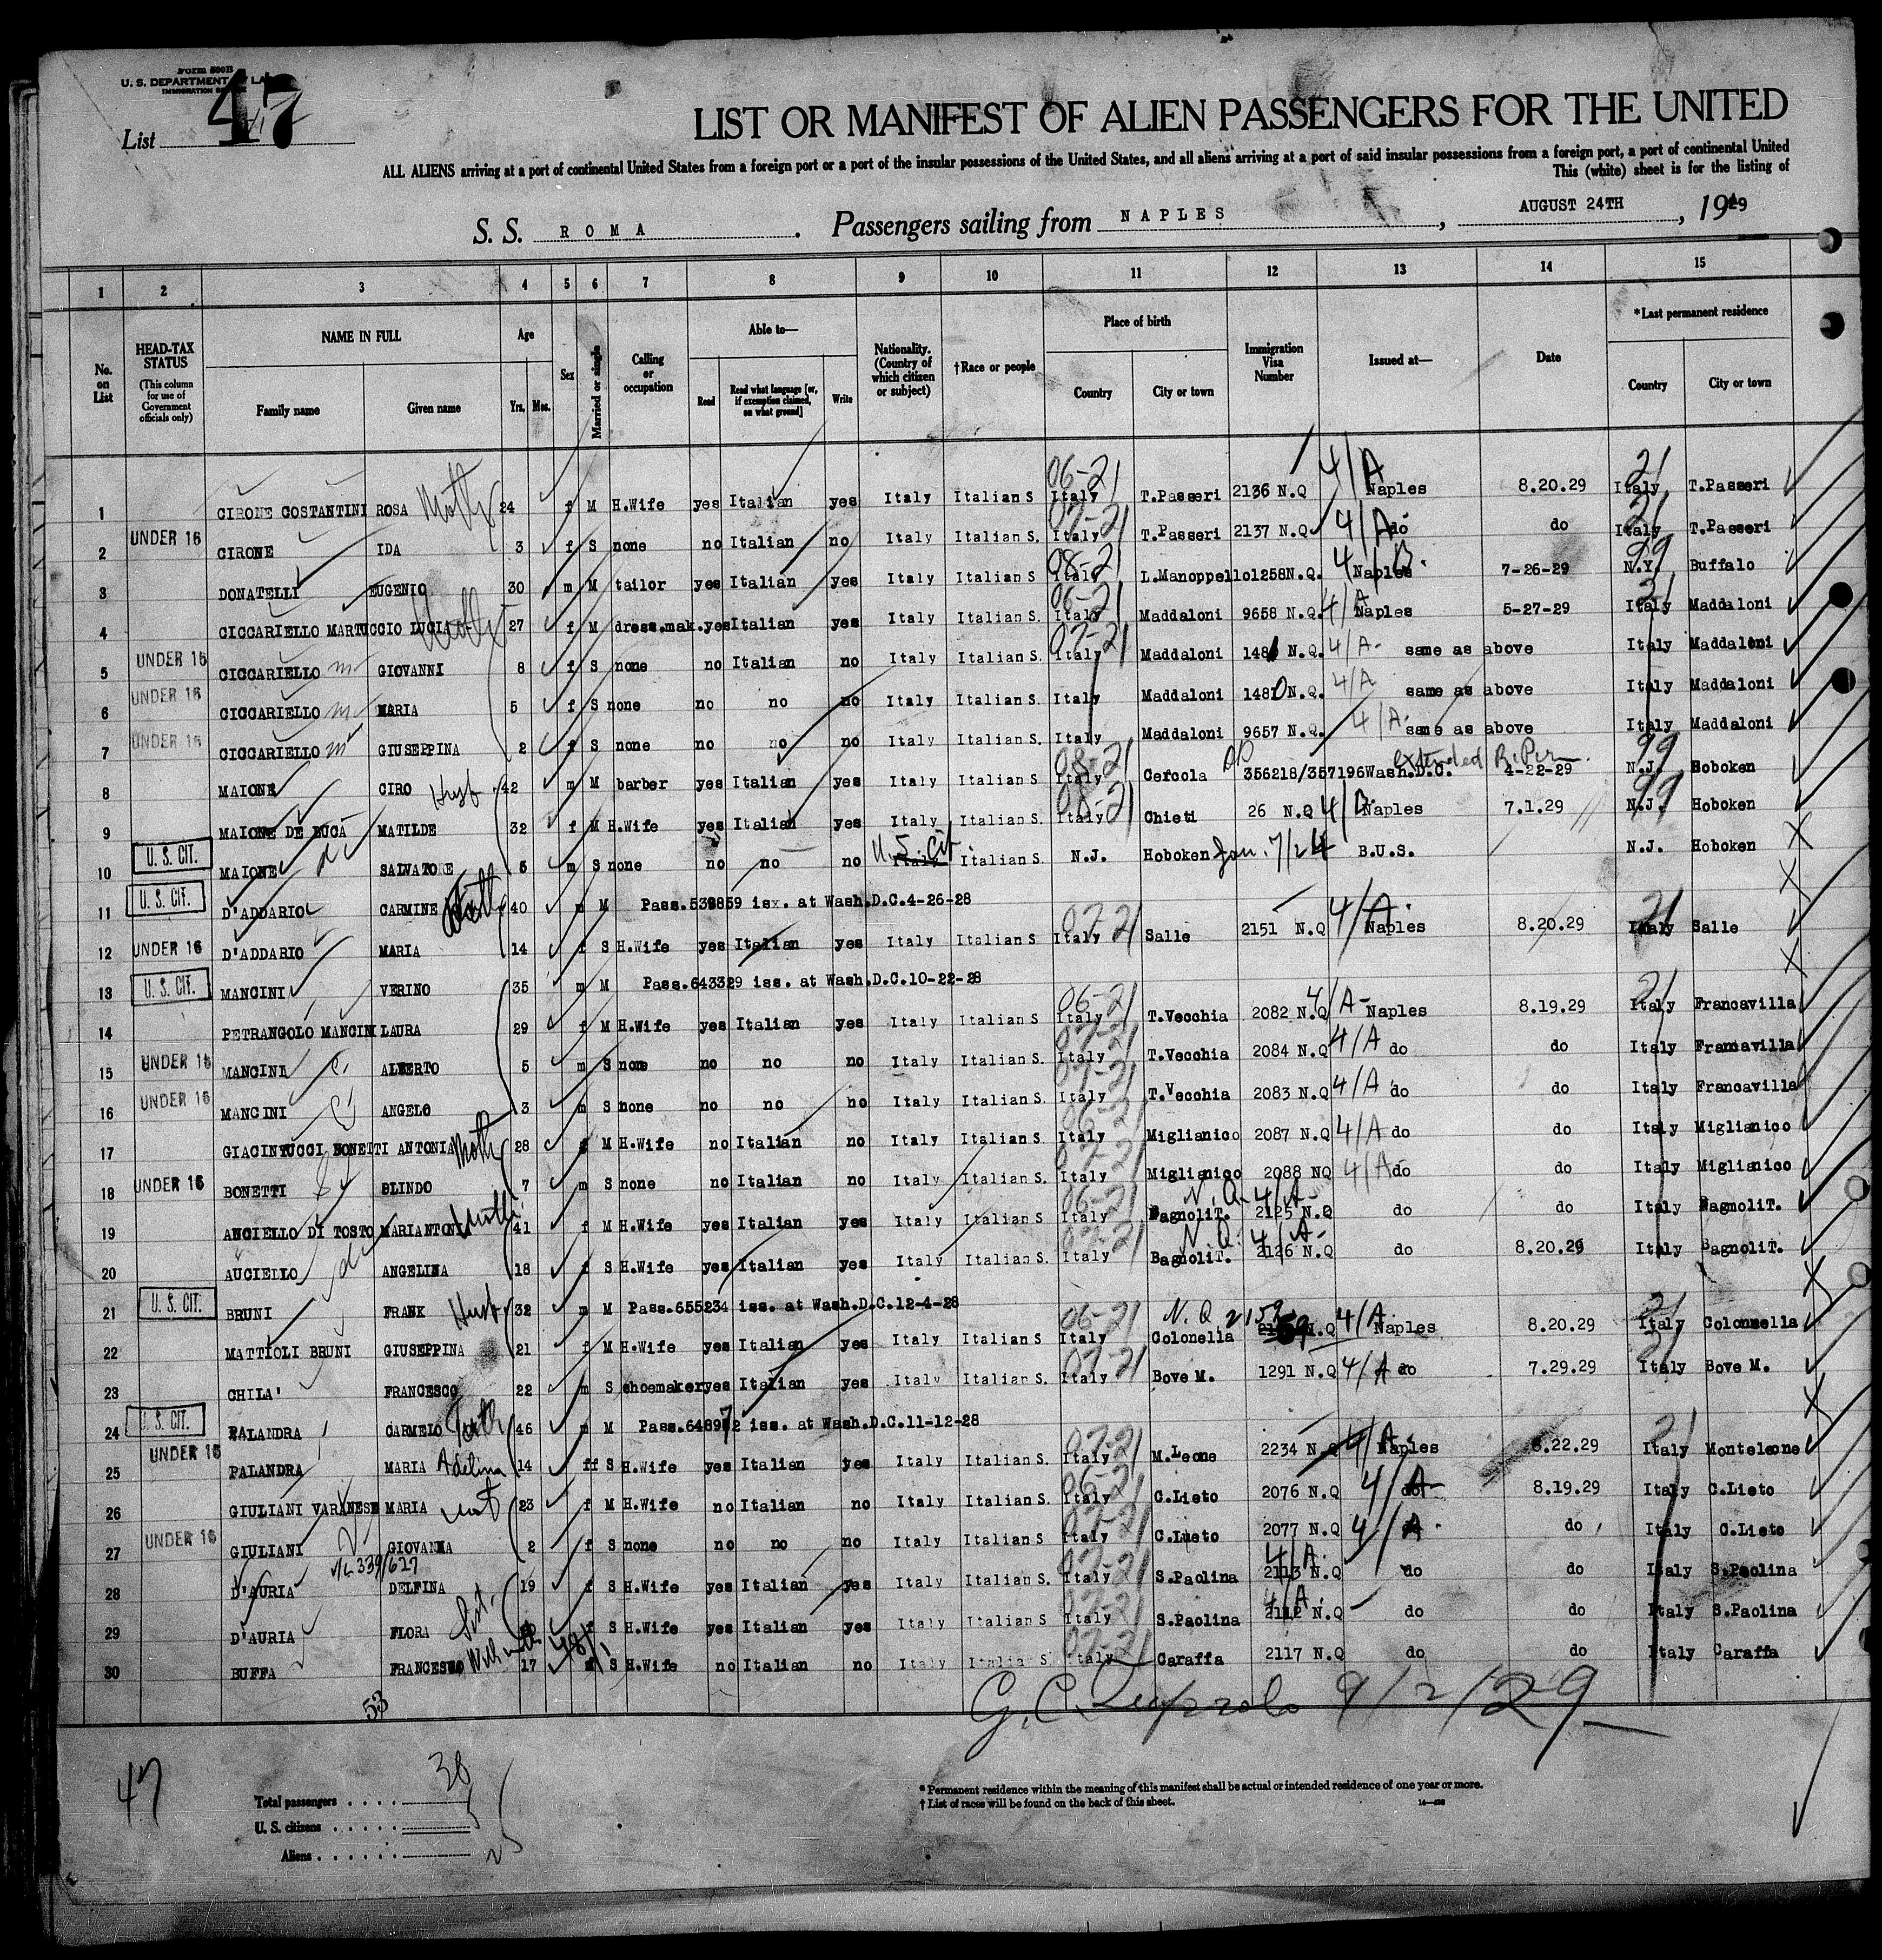 Form 500B
U. S. DEPARTMENT OF LA
IMMIGRATION SE
List 47
LIST OR MANIFEST OF ALIEN PASSENGERS FOR THE UNITED
ALL ALIENS arriving at a port of continental United States from a foreign port or a port of the insular possessions of the United States, and all aliens arriving at a port of said insular possessions from a foreign port, a port of continental United
This (white) sheet is for the listing of
S. S. ROMA. Passengers sailing from NAPLES, AUGUST 24TH, 1929
1 2 3 4 5 6 7 8 9 10 11 12 13 14 15
No. on List
HEAD-TAX STATUS (This column for use of Government officials only)
NAME IN FULL Family name Given name
Age Yrs. Mos.
Sex
Married or single
Calling or occupation
Able to— Read Read what language [or, if exemption claimed, on what ground] Write
Nationality. (Country of which citizen or subject)
†Race or people
Place of birth Country City or town
Immigration Visa Number
Issued at—
Date
*Last permanent residence Country City or town
1 CIRONE COSTANTINI ROSA Moth 24 f M H.Wife yes Italian yes Italy Italian S 06-21 Italy T.Passeri 2136 N.Q 4/A Naples 8.20.29 21 Italy T.Passeri
2 UNDER 16 CIRONE IDA 3 f S none no Italian no Italy Italian S. 07-21 Italy T.Passeri 2137 N.Q 4/A do do 21 Italy T.Passeri
3 DONATELLI EUGENIO 30 m M tailor yes Italian yes Italy Italian S 08-21 Italy L.Manoppello 1258N.Q. 4/B. Naples 7-26-29 99 N.Y. Buffalo
4 CICCARIELLO MARTUCCIO LUCIA Moth 27 f M dress.mak. yes Italian yes Italy Italian S. 06-21 Italy Maddaloni 9658 N.Q 4/A Naples 5-27-29 21 Italy Maddaloni
5 UNDER 16 CICCARIELLO m GIOVANNI 8 f S none no Italian no Italy Italian S. 07-21 Italy Maddaloni 1481 N.Q. 4/A- same as above Italy Maddaloni
6 UNDER 16 CICCARIELLO m MARIA 5 f S none no no no Italy Italian S. Italy Maddaloni 1480 N.Q. 4/A same as above Italy Maddaloni
7 UNDER 16 CICCARIELLO m GIUSEPPINA 2 f S none no no no Italy Italian S. Italy Maddaloni 9657 N.Q. 4/A- same as above Italy Maddaloni
8 MAIONE CIRO Husb 42 m M barber yes Italian yes Italy Italian S. 08-21 Italy Cercola 356218/357196 Wash.D.C. extended R.Per 4-22-29 99 N.J. Hoboken
9 MAIONE DE LUCA MATILDE 32 f M H.Wife yes Italian yes Italy Italian S. 08-21 Italy Chieti 26 N.Q 4/A Naples 7.1.29 99 N.J. Hoboken
10 U. S. CIT. MAIONE SALVATORE 5 m S none no no no U.S. Cit. Italy Italian S. N.J. Hoboken Jan. 7/24 B.U.S. N.J. Hoboken
11 U. S. CIT. D'ADDARIO CARMINE Fath 40 m M Pass.539859 isx. at Wash.D.C.4-26-28
12 UNDER 16 D'ADDARIO MARIA 14 f S H.Wife yes Italian yes Italy Italian S 07-21 Italy Salle 2151 N.Q 4/A- Naples 8.20.29 21 Italy Salle
13 U. S. CIT. MANCINI VERINO 35 m M Pass.643329 iss. at Wash.D.C.10-22-28
14 PETRANGOLO MANCINI LAURA 29 f M H.Wife yes Italian yes Italy Italian S 06-21 Italy T.Vecchia 2082 N.Q 4/A- Naples 8.19.29 21 Italy Francavilla
15 UNDER 16 MANCINI ALBERTO 5 m S none no no no Italy Italian S. 07-21 Italy T.Vecchia 2084 N.Q 4/A do do Italy Francavilla
16 UNDER 16 MANCINI ANGELO 3 m S none no no no Italy Italian S. 07-21 Italy T.Vecchia 2083 N.Q 4/A do do Italy Francavilla
17 GIACINTUCCI BONETTI ANTONIA Moth 28 f M H.Wife no Italian no Italy Italian S 06-21 Italy Miglianico 2087 N.Q 4/A do do Italy Miglianico
18 UNDER 16 BONETTI BLINDO 7 m S none no Italian no Italy Italian S. 07-21 Italy Miglianico 2088 NQ 4/A do do Italy Miglianico
19 ANCIELLO DI TOSTO MARIANTONIA Moth 41 f M H.Wife yes Italian yes Italy Italian S 06-21 Italy BagnoliT. N.Q. 4/A- 2125 N.Q do do Italy BagnoliT.
20 AUCIELLO ANGELINA 18 f S H.Wife yes Italian yes Italy Italian S. 07-21 Italy BagnoliT. N.Q. 4/A- 2126 N.Q do 8.20.29 Italy BagnoliT.
21 U. S. CIT. BRUNI FRANK Husb 32 m M Pass.655234 iss. at Wash.D.C.12-4-28
22 MATTIOLI BRUNI GIUSEPPINA 21 f M H.Wife yes Italian yes Italy Italian S 06-21 Italy Colonella N.Q 2159 N.Q 4/A. Naples 8.20.29 21 Italy Colonnella
23 CHILA' FRANCESCO 22 m S shoemaker yes Italian yes Italy Italian S. 07-21 Italy Bove M. 1291 N.Q 4/A do 7.29.29 21 Italy Bove M.
24 U. S. CIT. PALANDRA CARMELO Fath 46 m M Pass.648972 iss. at Wash.D.C.11-12-28
25 UNDER 16 PALANDRA MARIA Adelina 14 ff S H.Wife yes Italian yes Italy Italian S. 07-21 Italy M.Leone 2234 N.Q 4/A- Naples 8.22.29 21 Italy Monteleone
26 GIULIANI VARANESE MARIA Mot 23 f M H.Wife no Italian no Italy Italian S. 06-21 Italy C.Lieto 2076 N.Q 4/A do 8.19.29 Italy C.Lieto
27 UNDER 16 GIULIANI GIOVANNA 2 f S none no no no Italy Italian S. 07-21 Italy C.Lieto 2077 N.Q 4/A. do Italy C.Lieto
V/L 339/627
28 D'AURIA DELFINA 19 f S H.Wife yes Italian yes Italy Italian S. 07-21 Italy S.Paolina 4/A. 2113 N.Q do do Italy S.Paolina
29 D'AURIA FLORA Sist. f S H.Wife yes Italian yes Italy Italian S 07-21 Italy S.Paolina 4/A. 2112 N.Q do do Italy S.Paolina
30 BUFFA With 17 48/1 S H.Wife no Italian no Italy Italian S 07-21 Italy Caraffa 2117 N.Q do do Italy Caraffa
53
9/2/29
47
Total passengers . . . . 30
U. S. citizens . . . . . 5
Aliens . . . . . . 25
* Permanent residence within the meaning of this manifest shall be actual or intended residence of one year or more.
† List of races will be found on the back of this sheet.